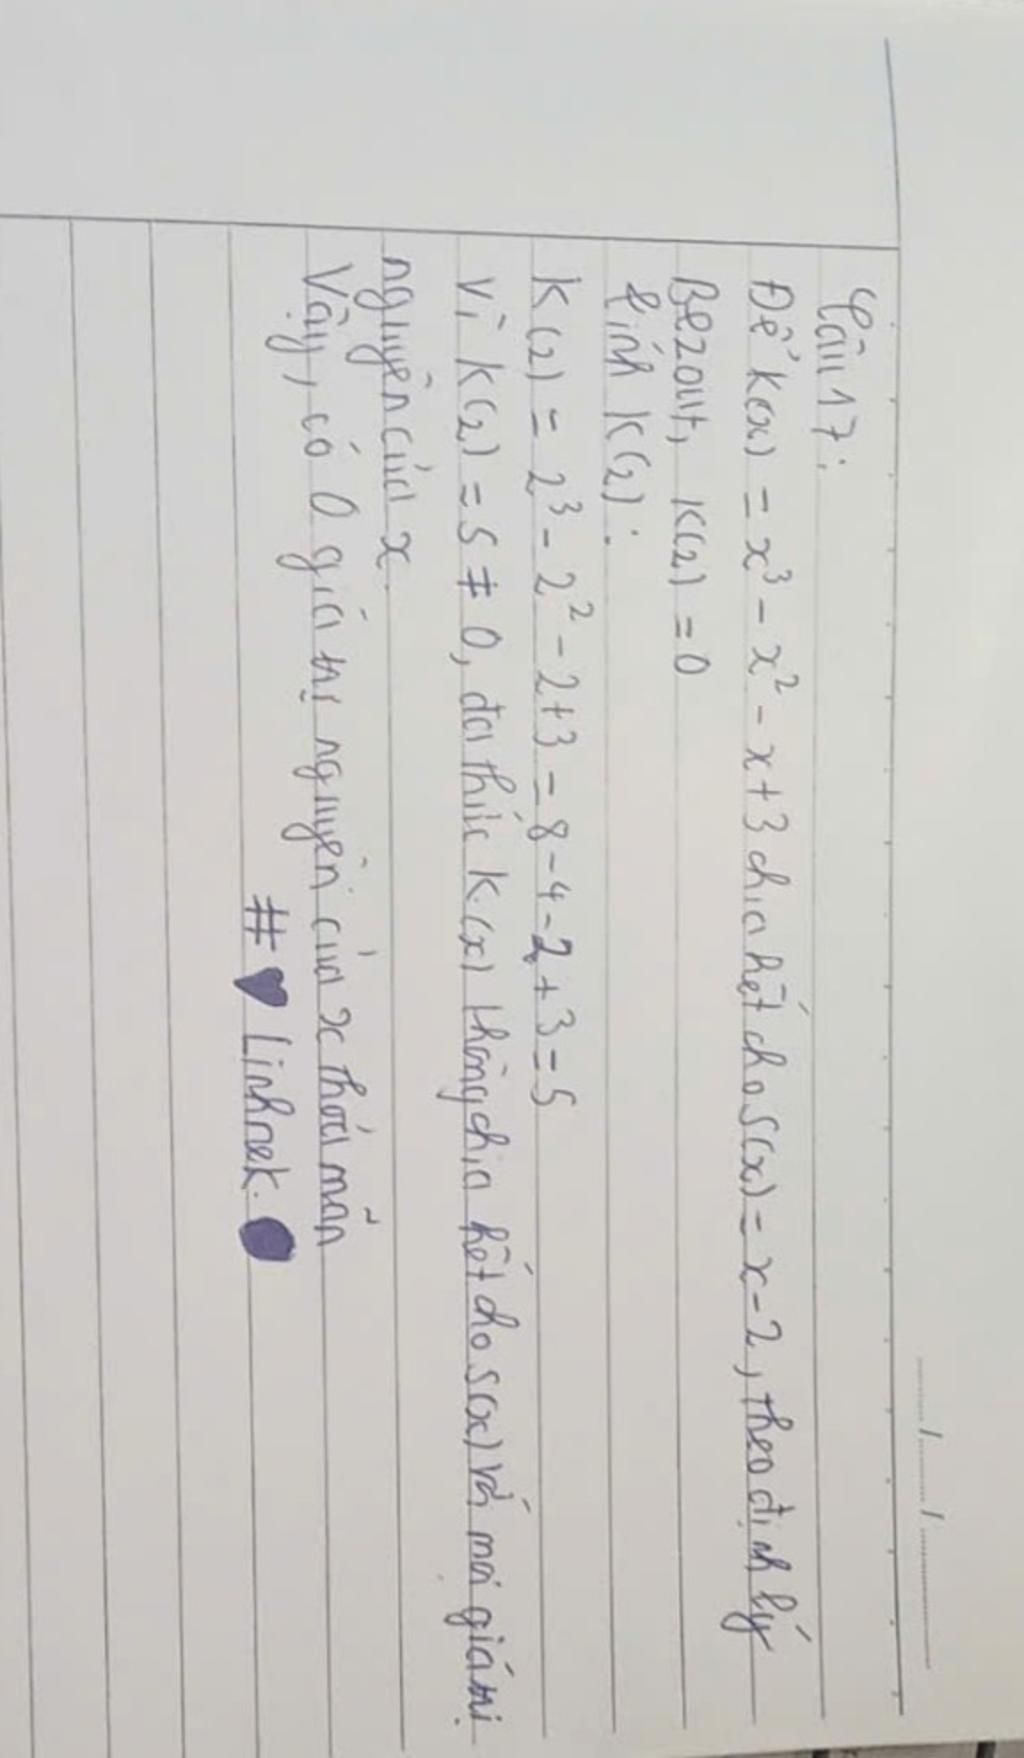 ...../...../.........
Câu 17:
Để K(x) = x³ - x² - x + 3 chia hết cho S(x) = x - 2, theo định lý
Bezout, K(2) = 0
tính K(2):
K(2) = 2³ - 2² - 2 + 3 = 8 - 4 - 2 + 3 = 5
Vì K(2) = 5 ≠ 0, đa thức K(x) không chia hết cho S(x) với mọi giá trị
nguyên của x.
Vậy, có 0 giá trị nguyên của x thoả mãn
# ♥ Linhnek.